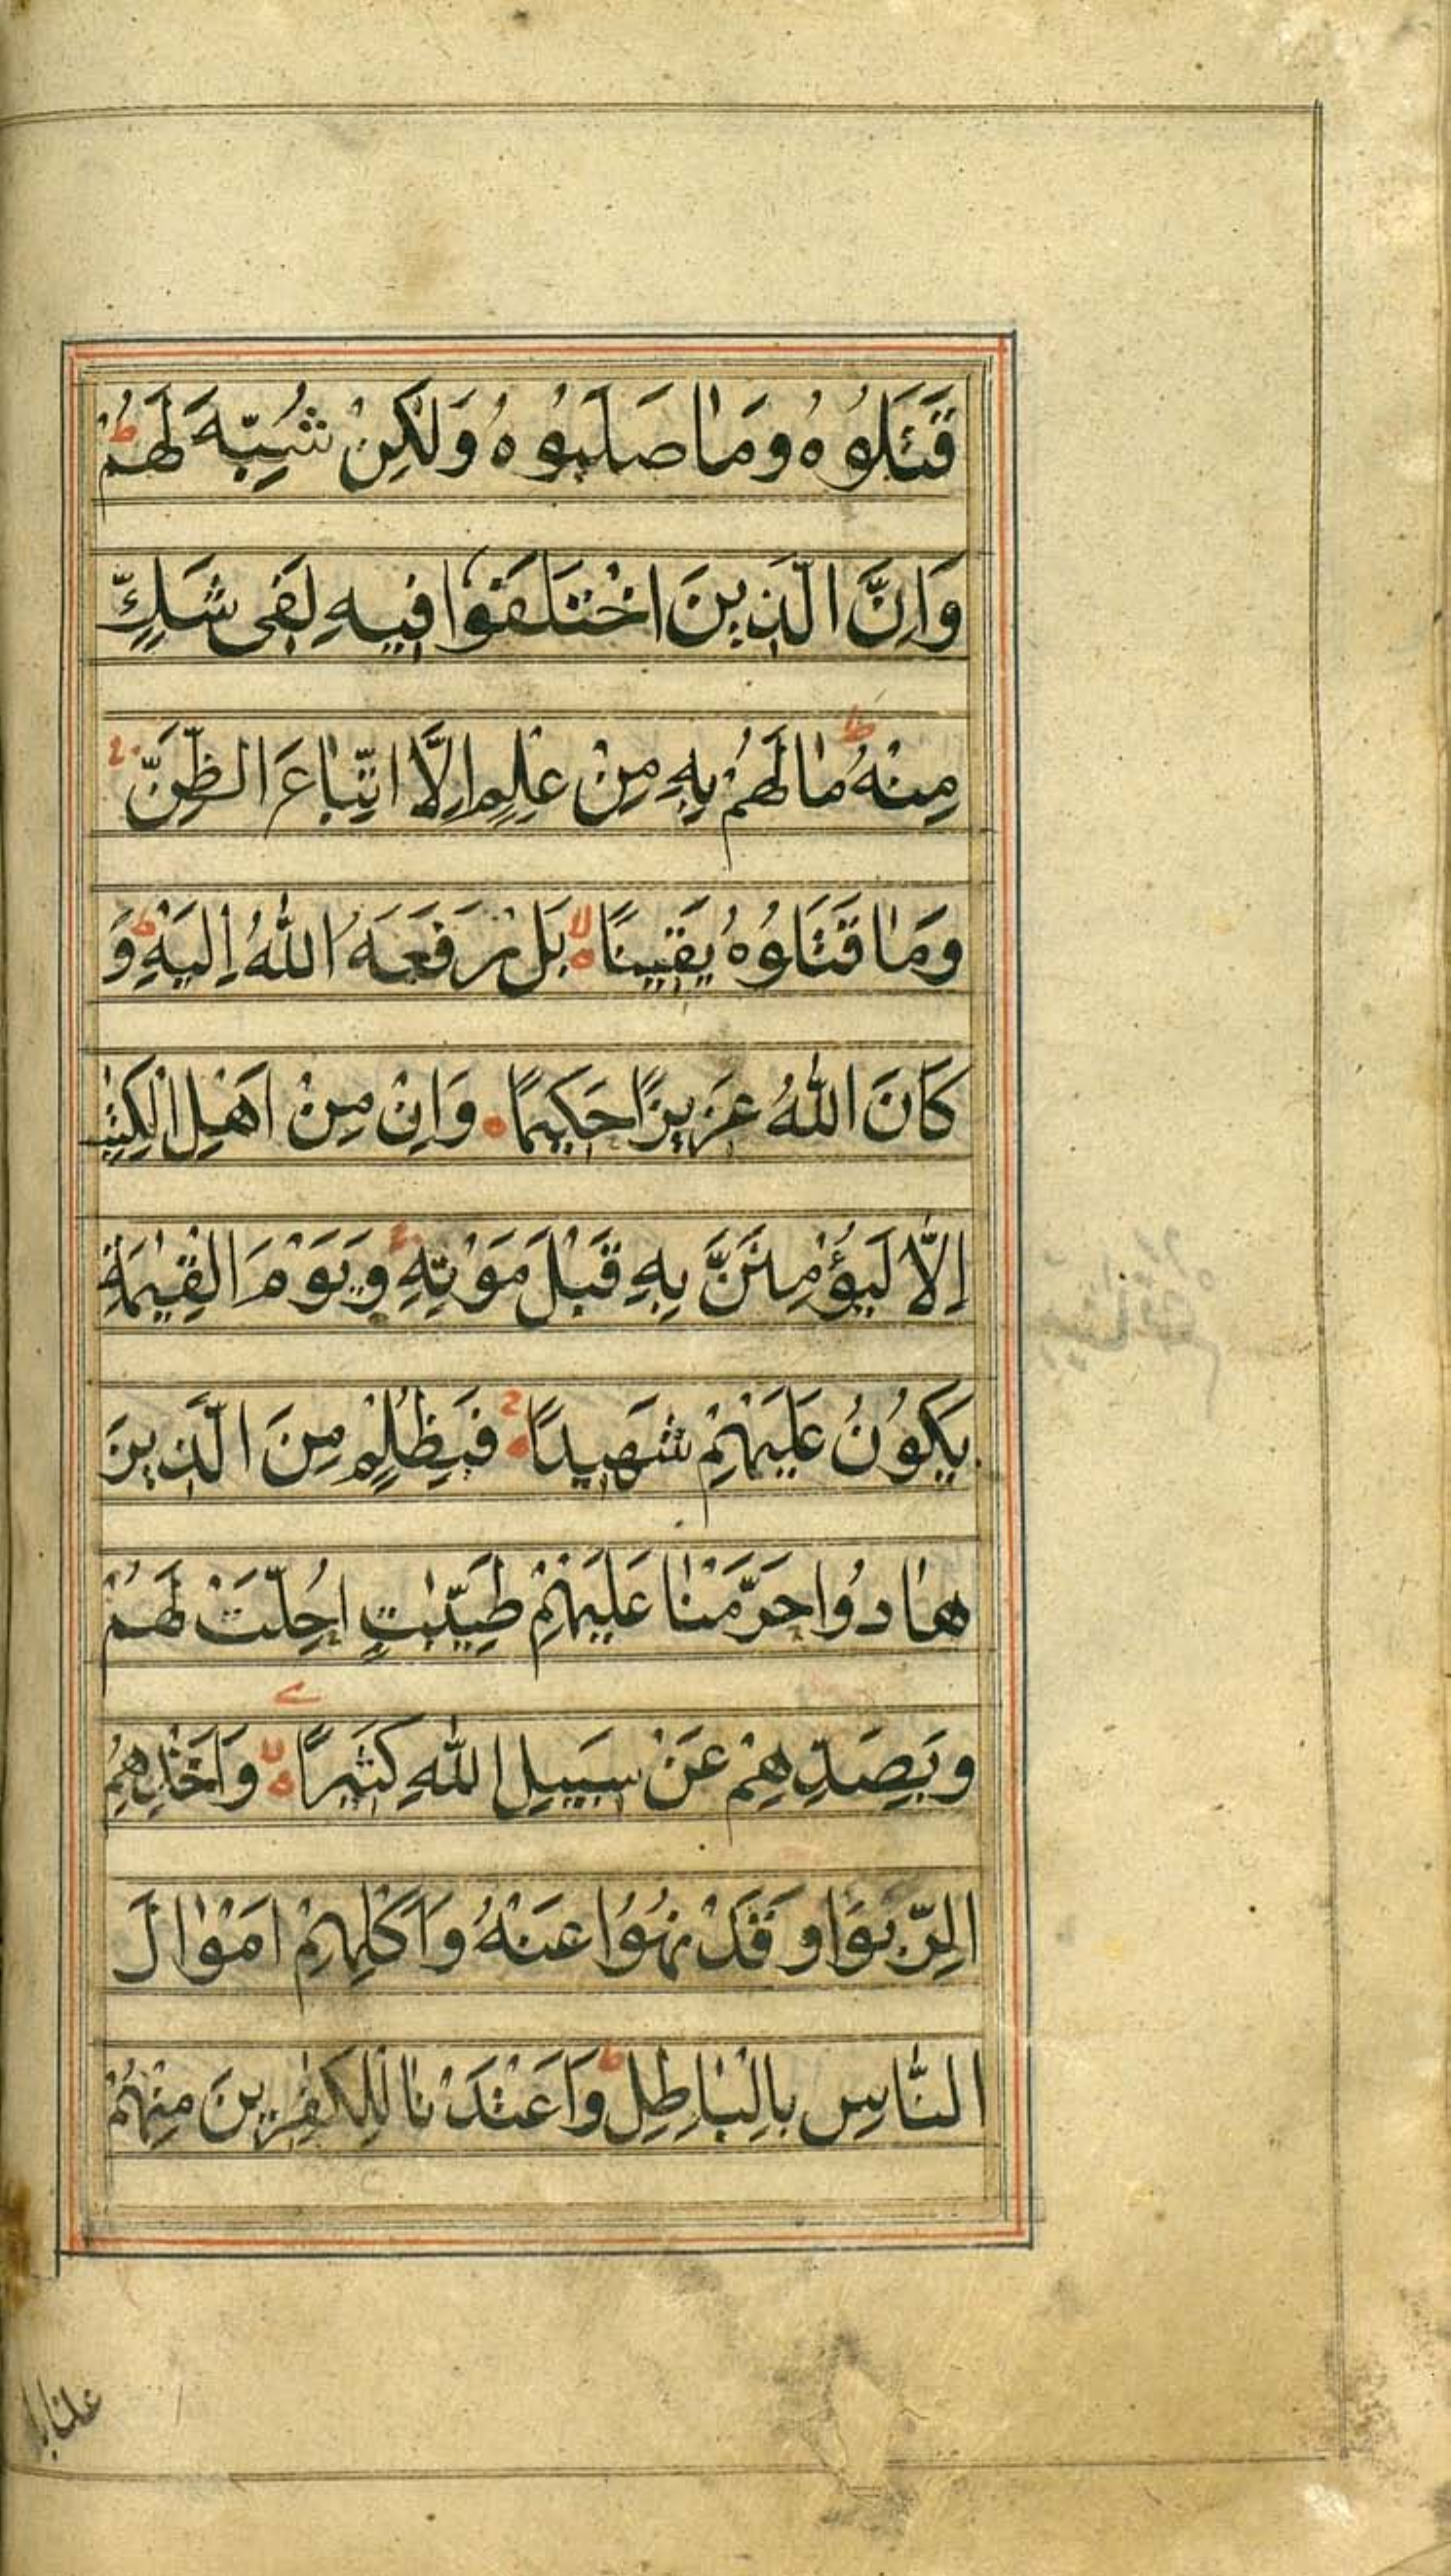 قَتَلُوهُ وَمَا صَلَبُوهُ وَلٰكِنْ شُبِّهَ لَهُمْ ط
وَاِنَّ الَّذِينَ اخْتَلَفُوْا فِيهِ لَفِى شَكٍّ
مِنْهُ ط مَا لَهُمْ بِهِ مِنْ عِلْمٍ اِلَّا اتِّبَاعَ الظَّنِّ ج
وَمَا قَتَلُوهُ يَقِينًا لا بَلْ رَفَعَهُ اللّٰهُ اِلَيْهِ ط وَ
كَانَ اللّٰهُ عَزِيزًا حَكِيمًا وَاِنْ مِنْ اَهْلِ الْكِتٰبِ
اِلَّا لَيُؤْمِنَنَّ بِهِ قَبْلَ مَوْتِهِ ج وَيَوْمَ الْقِيٰمَةِ
يَكُوْنُ عَلَيْهِمْ شَهِيدًا ج فَبِظُلْمٍ مِنَ الَّذِينَ
هَادُوا حَرَّمْنَا عَلَيْهِمْ طَيِّبٰتٍ اُحِلَّتْ لَهُمْ
وَبِصَدِّهِمْ عَنْ سَبِيلِ اللّٰهِ كَثِيرًا لا وَاَخْذِهِمُ
الرِّبَوا وَقَدْ نُهُوْا عَنْهُ وَاَكْلِهِمْ اَمْوَالَ
النَّاسِ بِالْبَاطِلِ ط وَاَعْتَدْنَا لِلْكٰفِرِينَ مِنْهُمْ